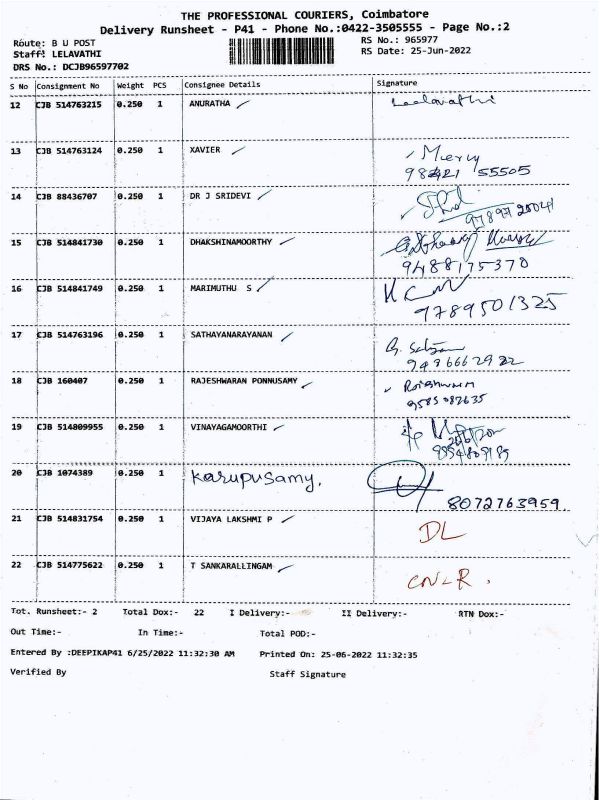 THE PROFESSIONAL COURIERS, Coimbatore
Delivery Runsheet - P41 - Phone No.:0422-3505555 - Page No.:2
Route: B U POST RS No.: 965977
Staff: LELAVATHI RS Date: 25-Jun-2022
DRS No.: DCJB96597702
S No Consignment No Weight PCS Consignee Details Signature
12 CJB 514763215 0.250 1 ANURATHA Leelavathi
13 CJB 514763124 0.250 1 XAVIER Mercy
55505
14 CJB 88436707 0.250 1 DR J SRIDEVI
15 CJB 514841730 0.250 1 DHAKSHINAMOORTHY
9488175370
16 CJB 514841749 0.250 1 MARIMUTHU S
9789501325
17 CJB 514763196 0.250 1 SATHAYANARAYANAN
18 CJB 160407 0.250 1 RAJESHWARAN PONNUSAMY
9585082635
19 CJB 514809955 0.250 1 VINAYAGAMOORTHI
20 CJB 1074389 0.250 1 Karupusamy.
8072763959
21 CJB 514831754 0.250 1 VIJAYA LAKSHMI P DL
22 CJB 514775622 0.250 1 T SANKARALLINGAM CNLR.
Tot. Runsheet:- 2 Total Dox:- 22 I Delivery:- II Delivery:- RTN Dox:-
Out Time:- In Time:- Total POD:-
Entered By :DEEPIKAP41 6/25/2022 11:32:30 AM Printed On: 25-06-2022 11:32:35
Verified By Staff Signature